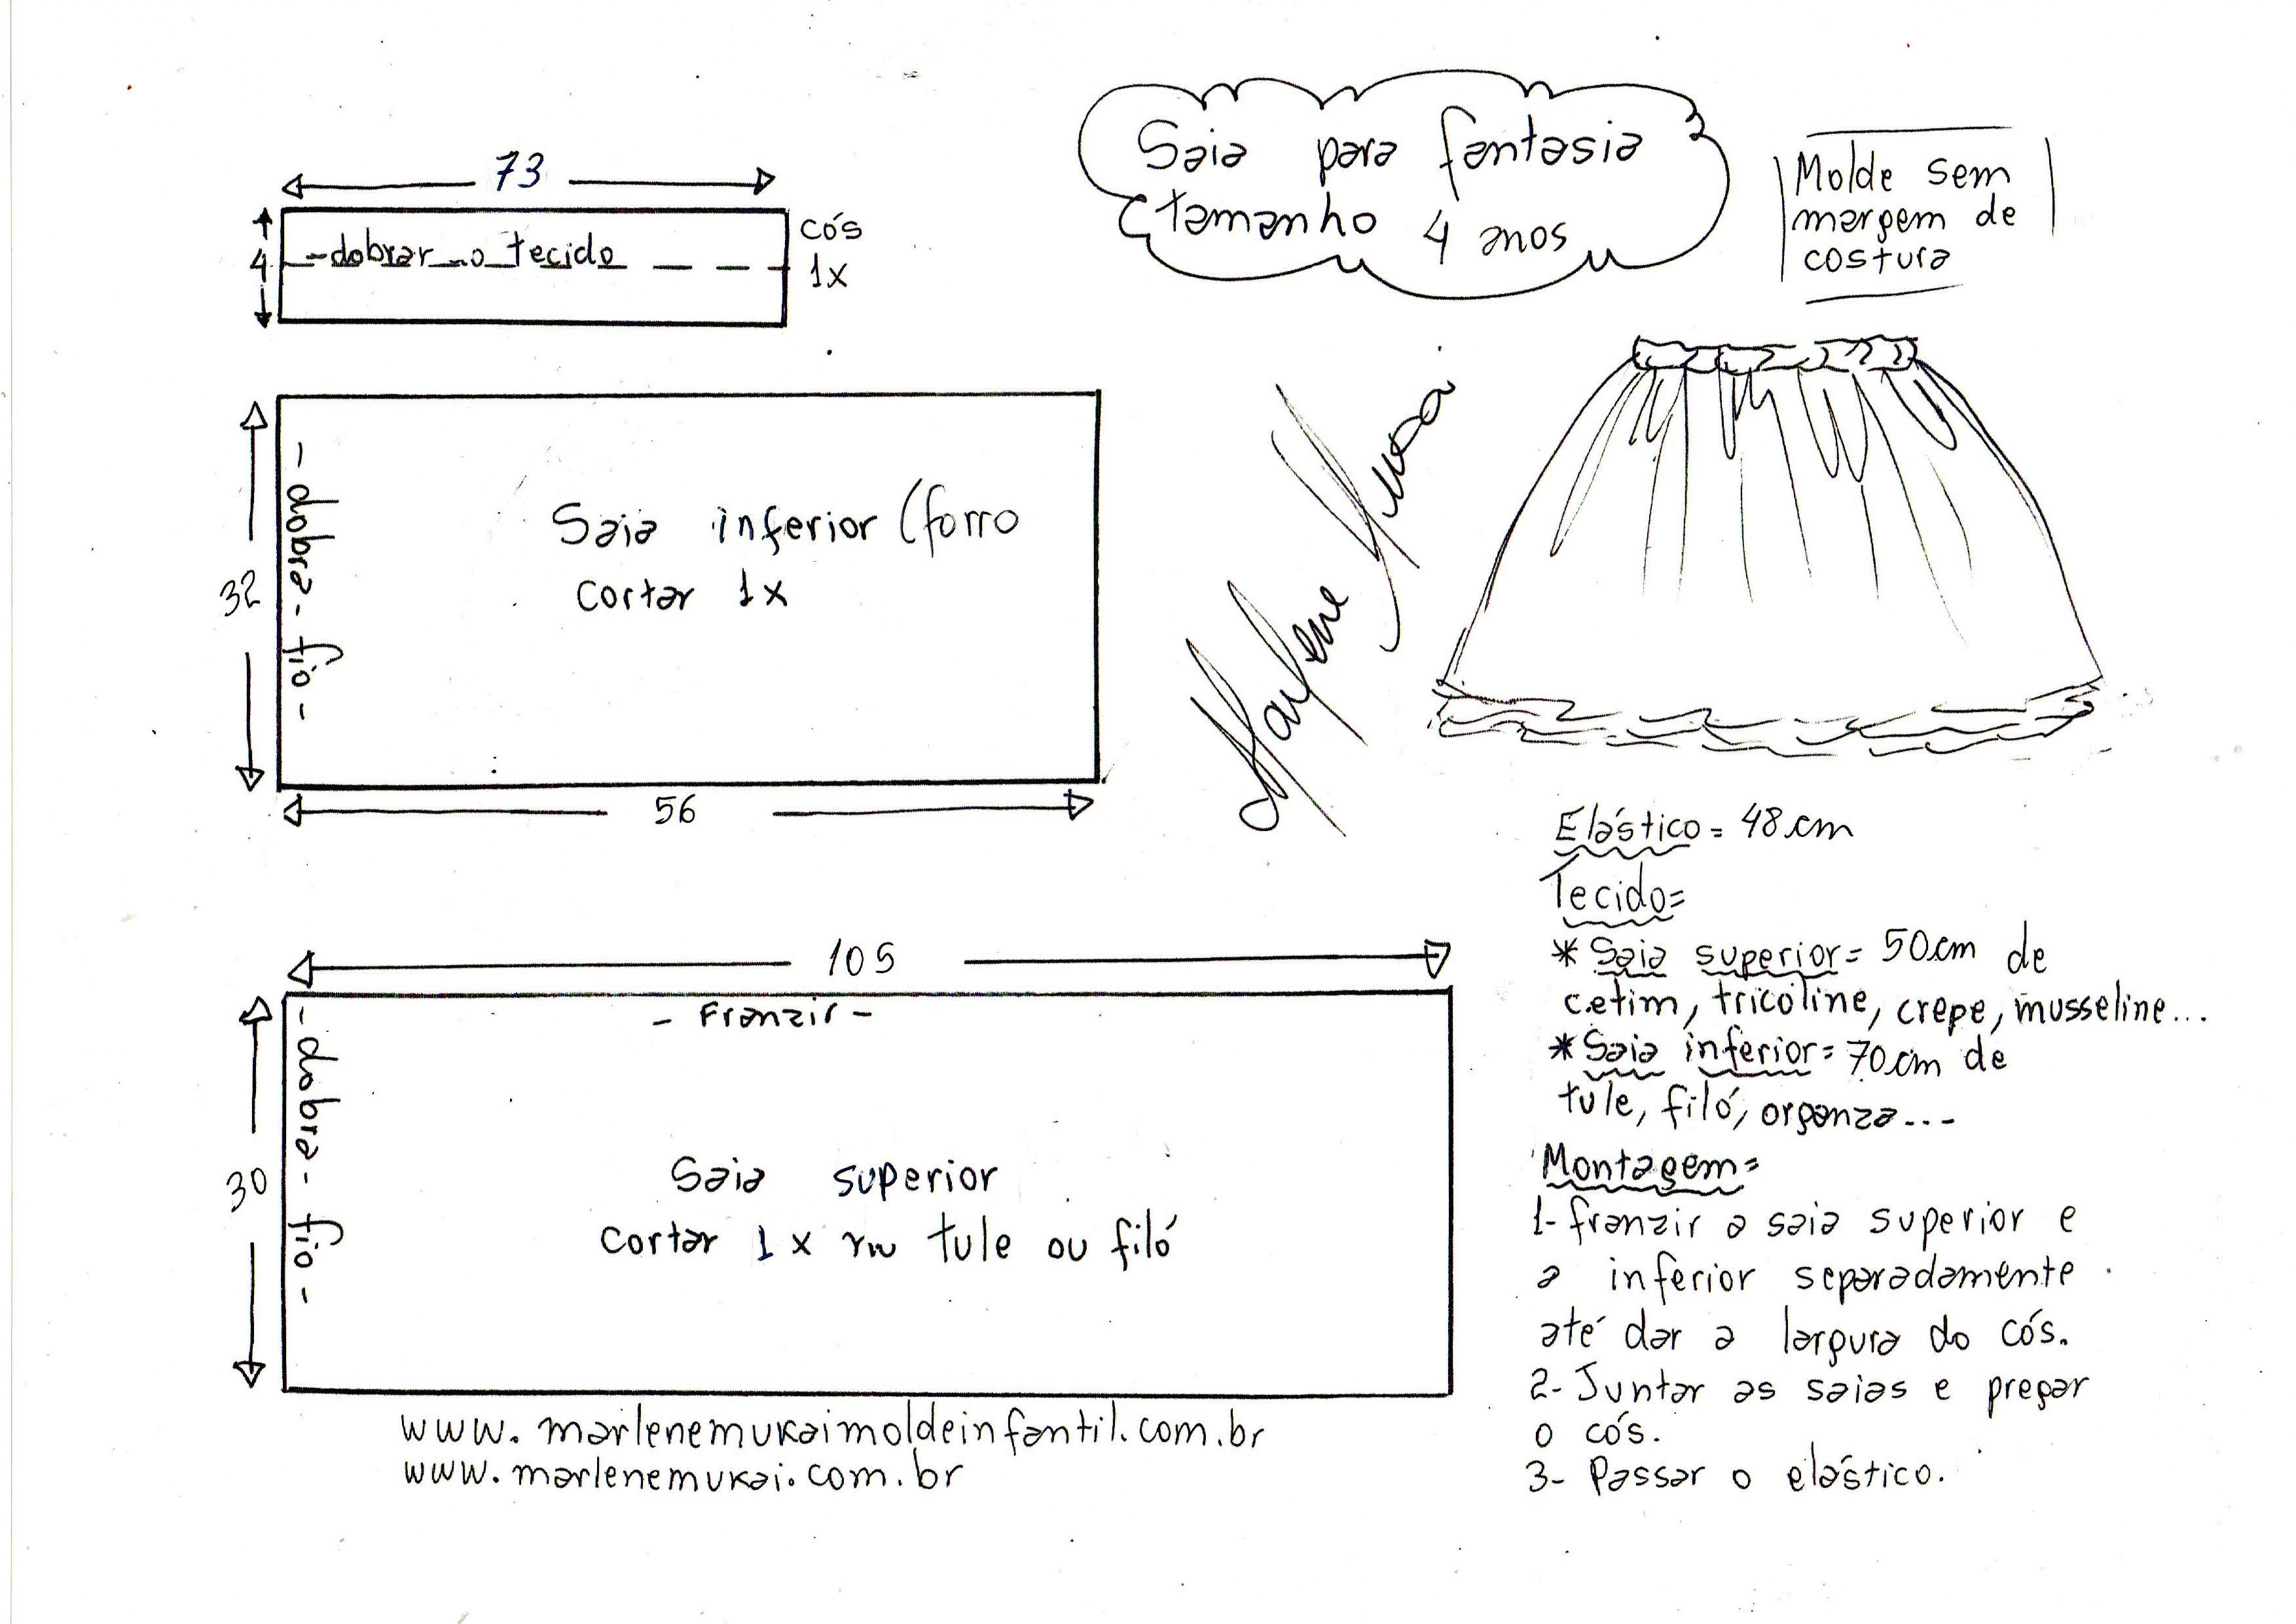 Saia para fantasia
tamanho 4 anos
Molde sem
margem de
costura
73
4
-dobrar o tecido
cós
1x
32
- dobra - fio -
Saia inferior (forro
cortar 1x
56
Marlene
105
- Franzir -
30
- dobra - fio -
Saia superior
cortar 1x em tule ou filó
www.marlenemukaimoldeinfantil.com.br
www.marlenemukai.com.br
Elástico = 48cm
Tecido=
* Saia superior= 50cm de
cetim, tricoline, crepe, musseline...
* Saia inferior= 70cm de
tule, filó, organza...
Montagem=
1- franzir a saia superior e
a inferior separadamente
até dar a largura do cós.
2- Juntar as saias e pregar
o cós.
3- Passar o elástico.